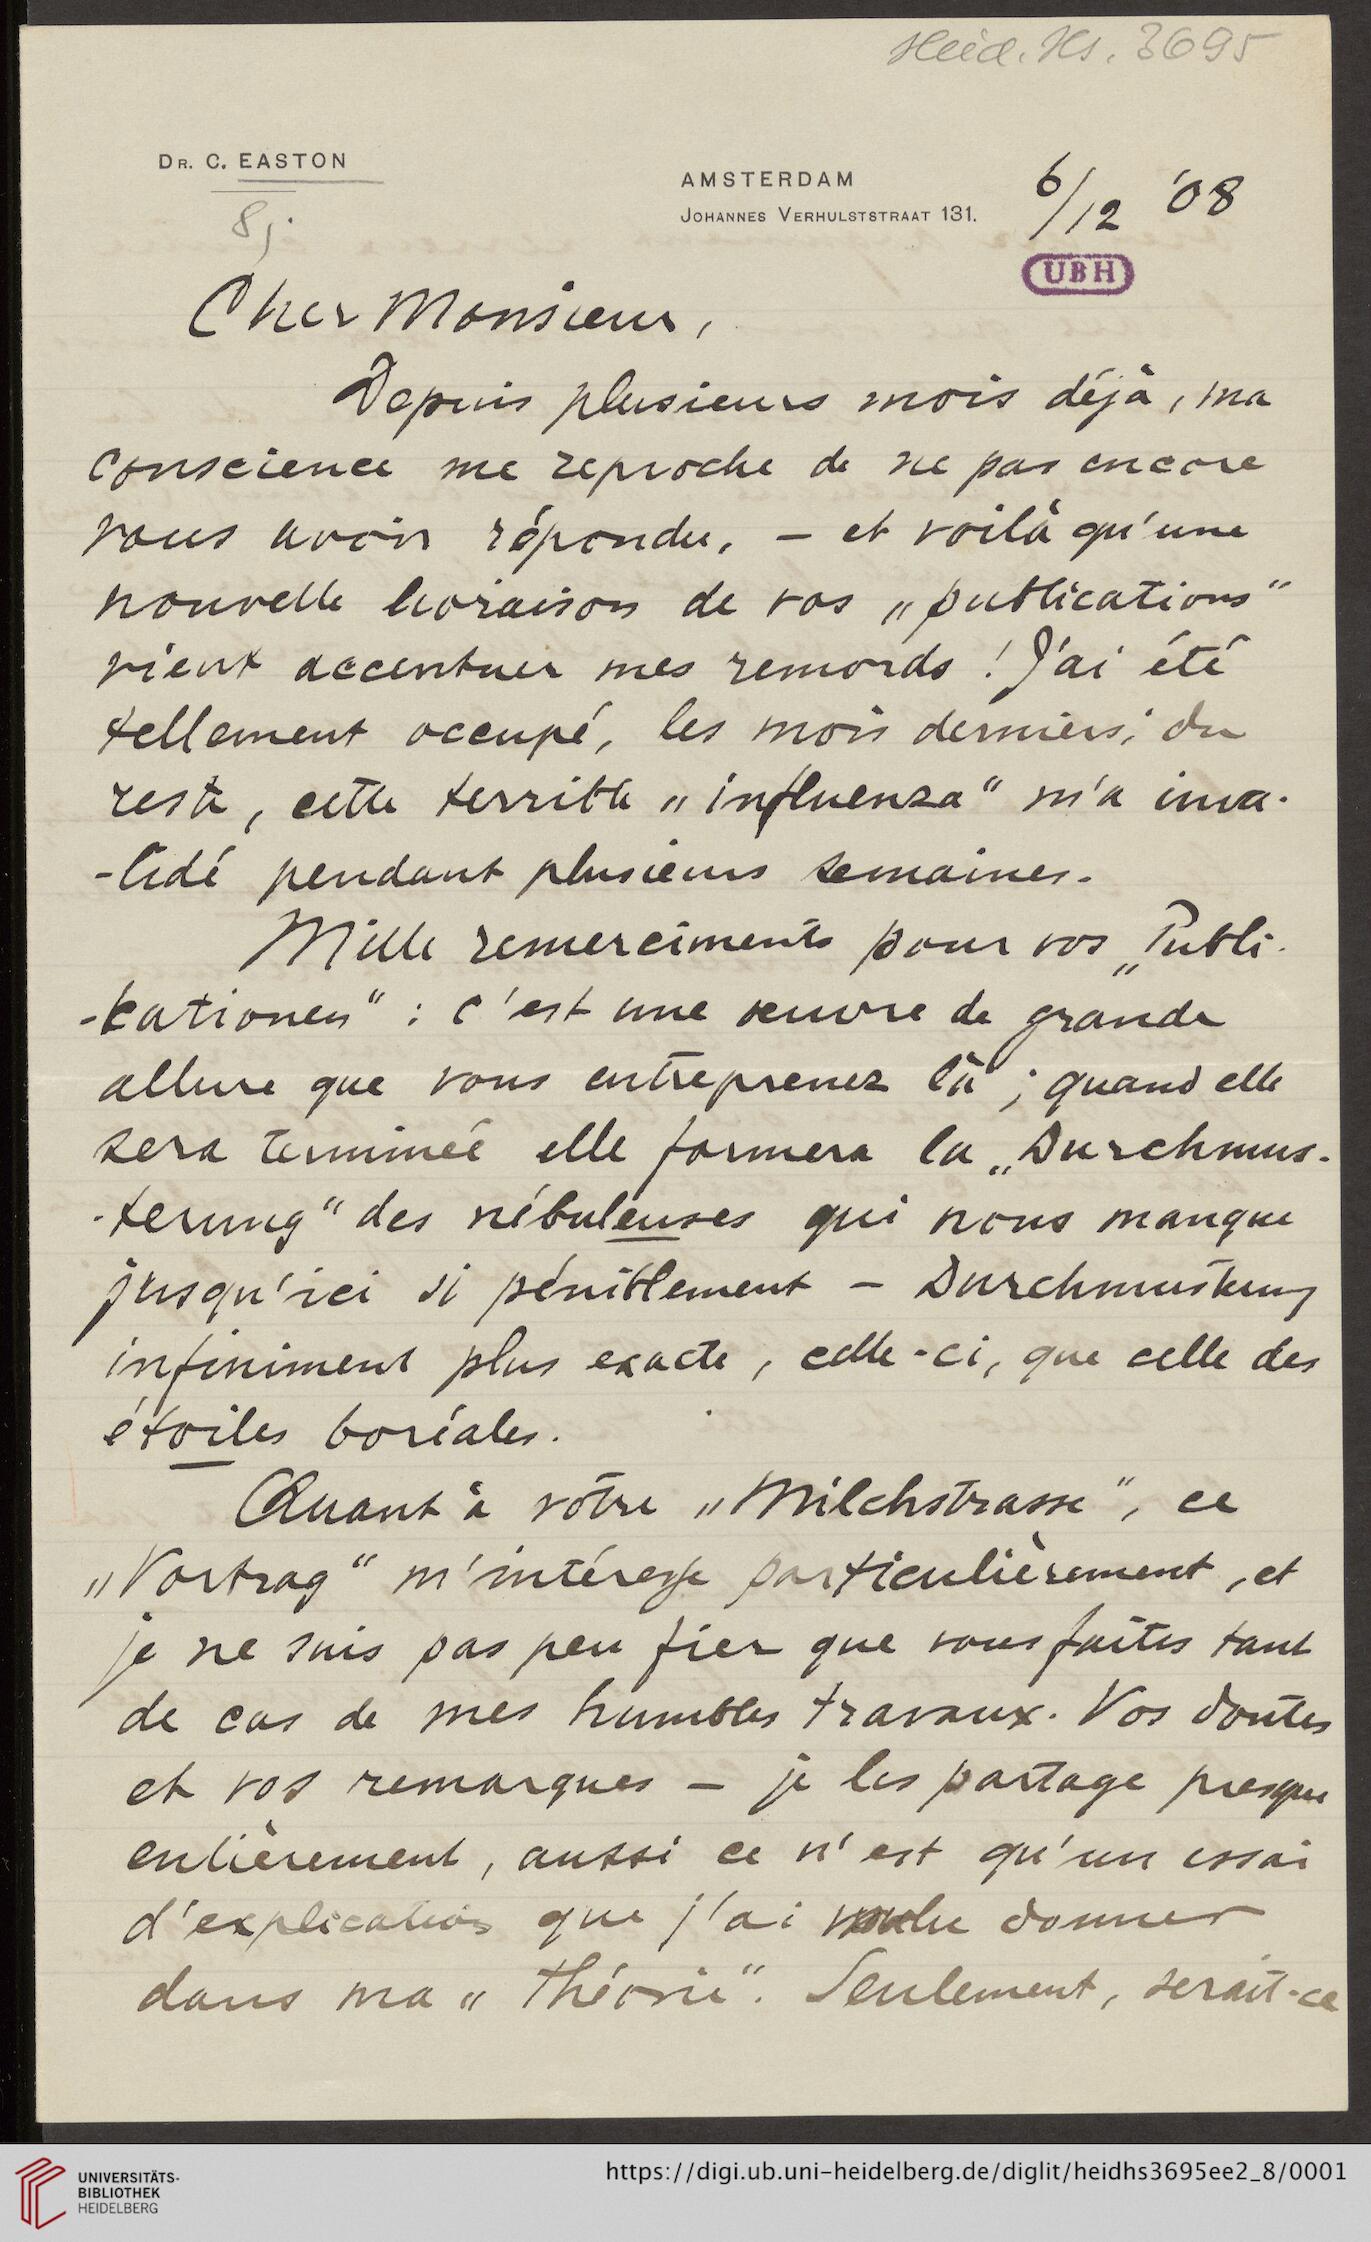 Heid. Hs. 3695
DR. C. EASTON
AMSTERDAM
JOHANNES VERHULSTSTRAAT 131.
6/12 '08
8)
UBH
Cher Monsieur,
Depuis plusieurs mois déjà, ma
conscience me reproche de ne pas encore
vous avoir répondu, – et voilà qu'une
nouvelle livraison de vos „publications"
vient accentuer mes remords ! J'ai été
tellement occupé, les mois derniers; du
reste, cette terrible „influenza" m'a inva-
-lidé pendant plusieurs semaines.
Mille remerciments pour vos „Publi-
-kationen" : c'est une œuvre de grande
allure que vous entreprenez là ; quand elle
sera terminée elle formera la „Durchmus-
-terung" des nébuleuses qui nous manque
jusqu'ici si péniblement – Durchmusterung
infiniment plus exacte, celle-ci, que celle des
étoiles boréales.
Quant à votre „Milchstrasse", ce
„Vortrag" m'intéresse particulièrement, et
je ne suis pas peu fier que vous faites tant
de cas de mes humbles travaux. Vos doutes
et vos remarques – je les partage presque
entièrement, aussi ce n'est qu'un essai
d'explication que j'ai voulu donner
dans ma „théorie". Seulement, serait-ce
UNIVERSITÄTS-
BIBLIOTHEK
HEIDELBERG
https://digi.ub.uni-heidelberg.de/diglit/heidhs3695ee2_8/0001